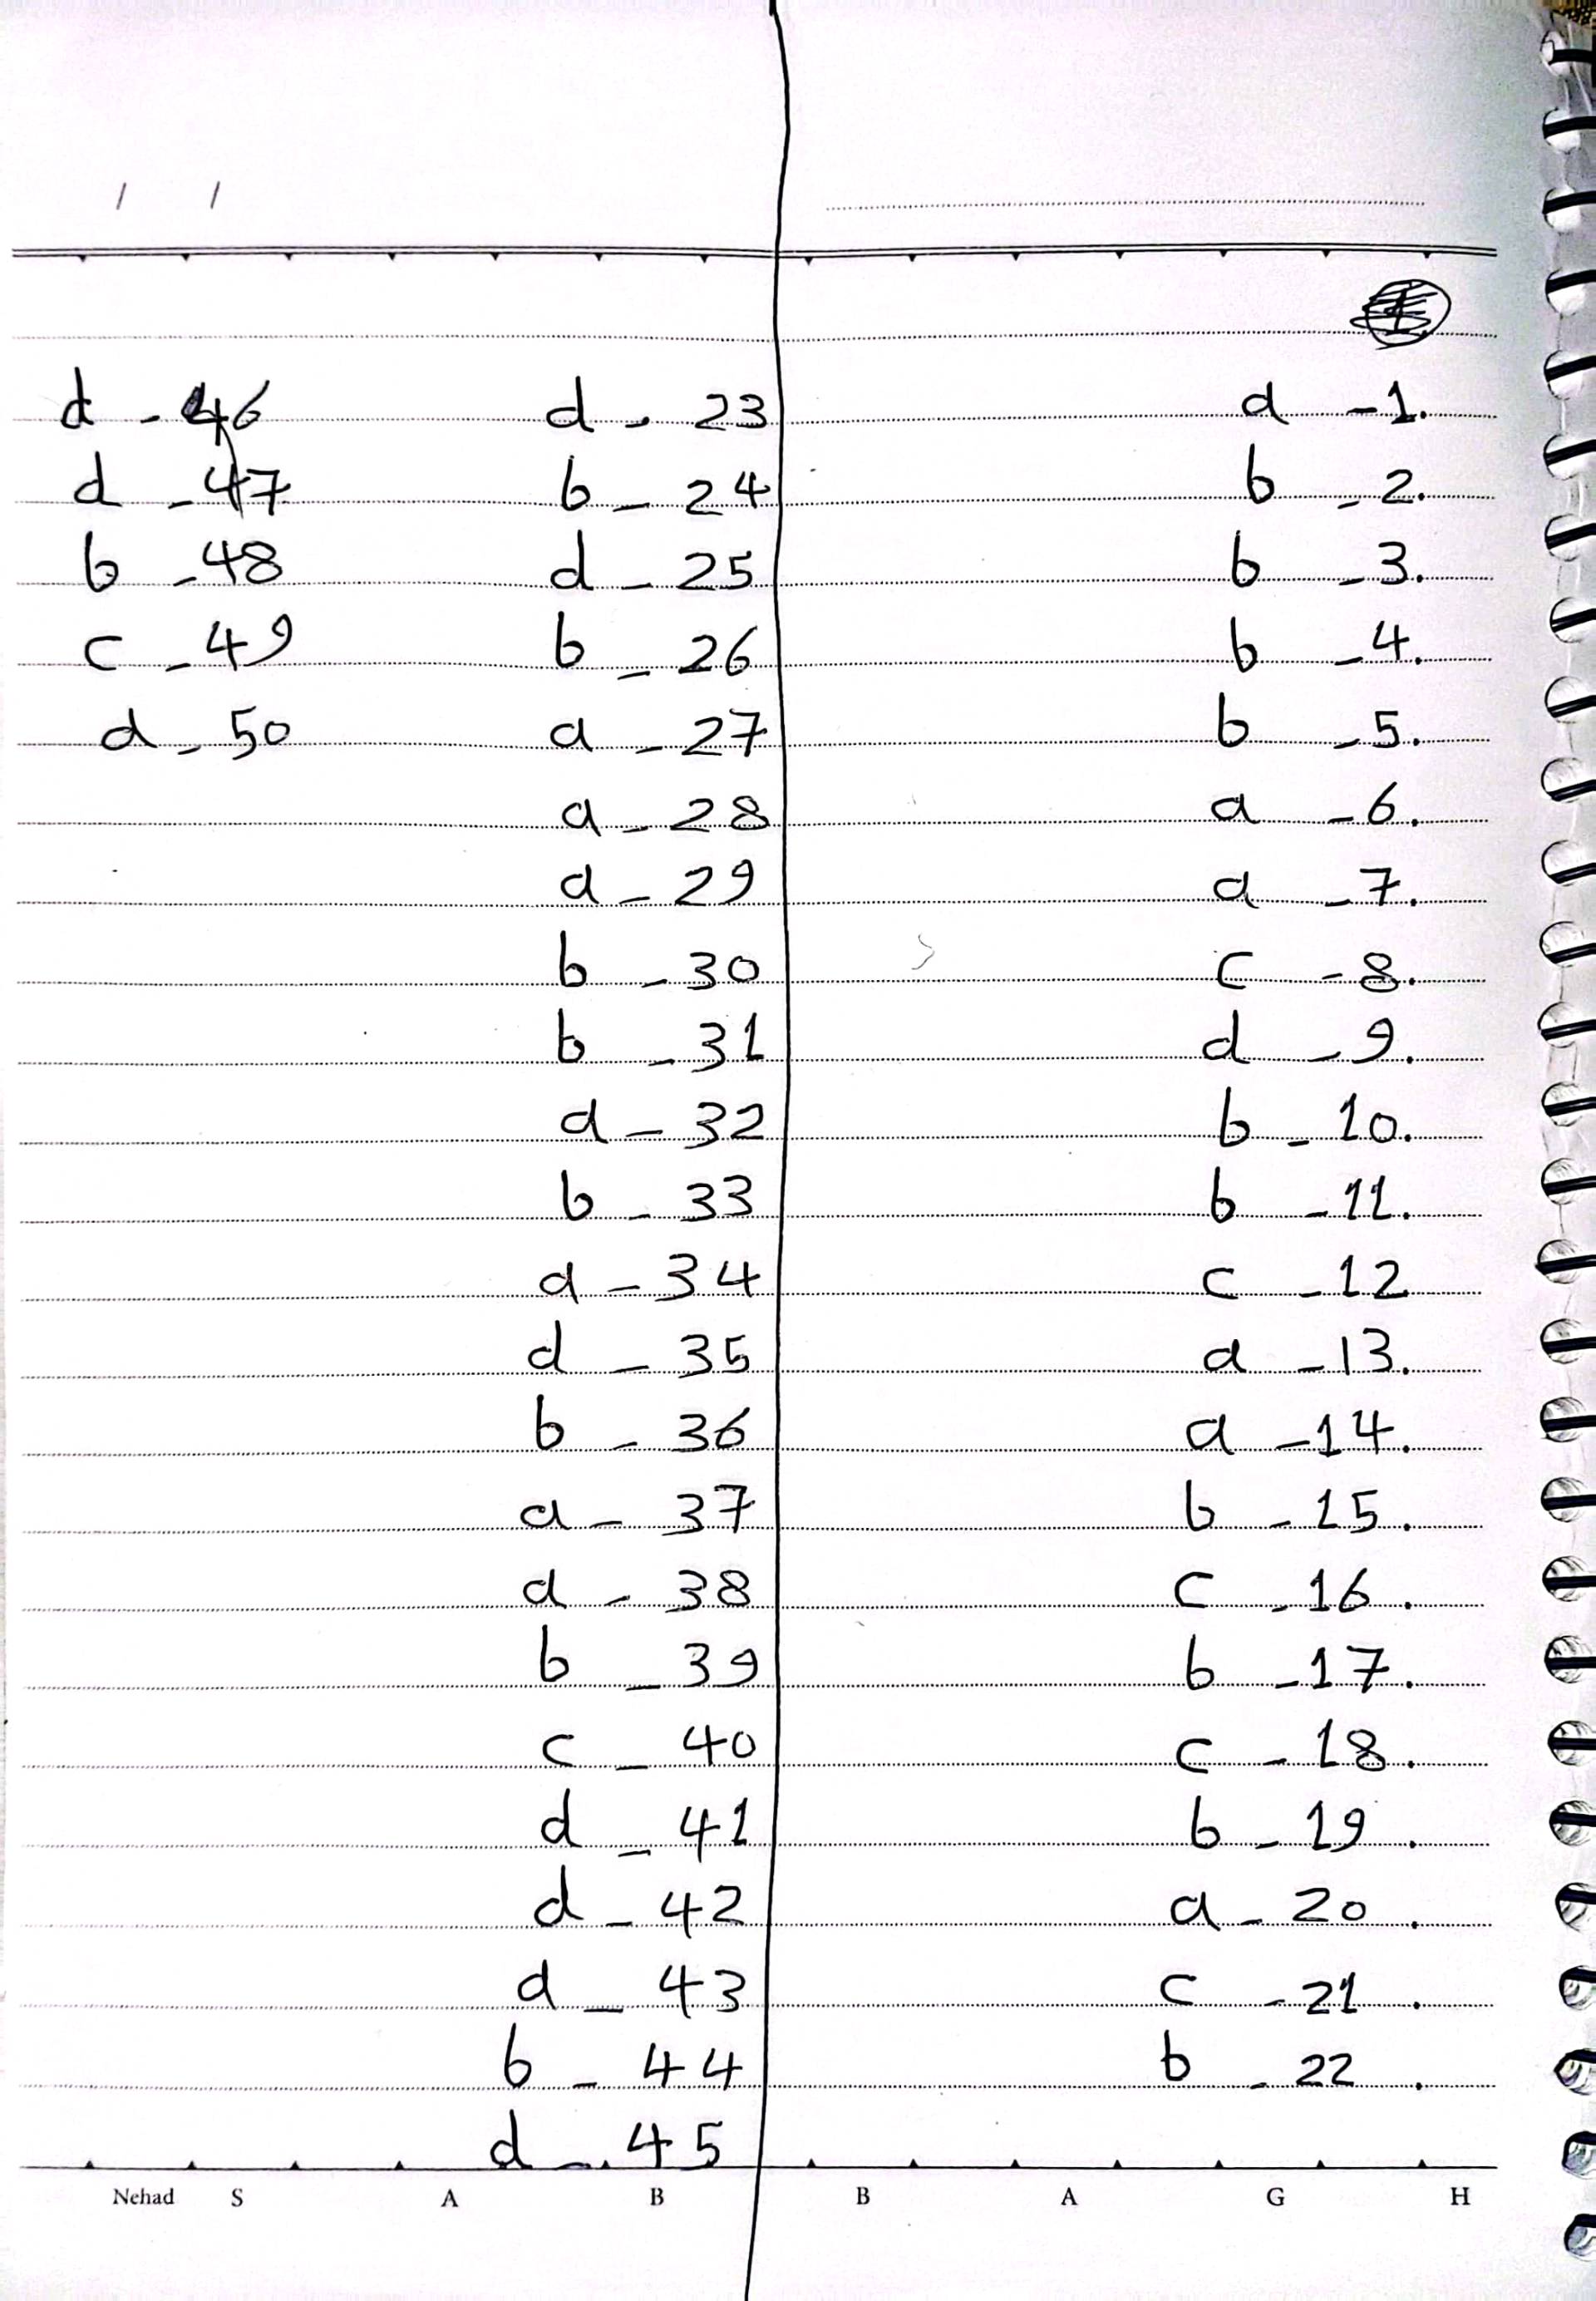 a - 1.
b - 2.
b - 3.
b - 4.
b - 5.
a - 6.
a - 7.
c - 8.
d - 9.
b - 10.
b - 11.
c - 12
a - 13.
a - 14.
b - 15.
c - 16.
b - 17.
c - 18.
b - 19.
a - 20.
c - 21.
b - 22.
d - 23
b - 24
d - 25
b - 26
a - 27
a - 28
a - 29
b - 30
b - 31
a - 32
b - 33
a - 34
d - 35
b - 36
a - 37
a - 38
b - 39
c - 40
d - 41
d - 42
a - 43
b - 44
d - 45
d - 46
d - 47
b - 48
c - 49
d - 50
Nehad S A B B A G H